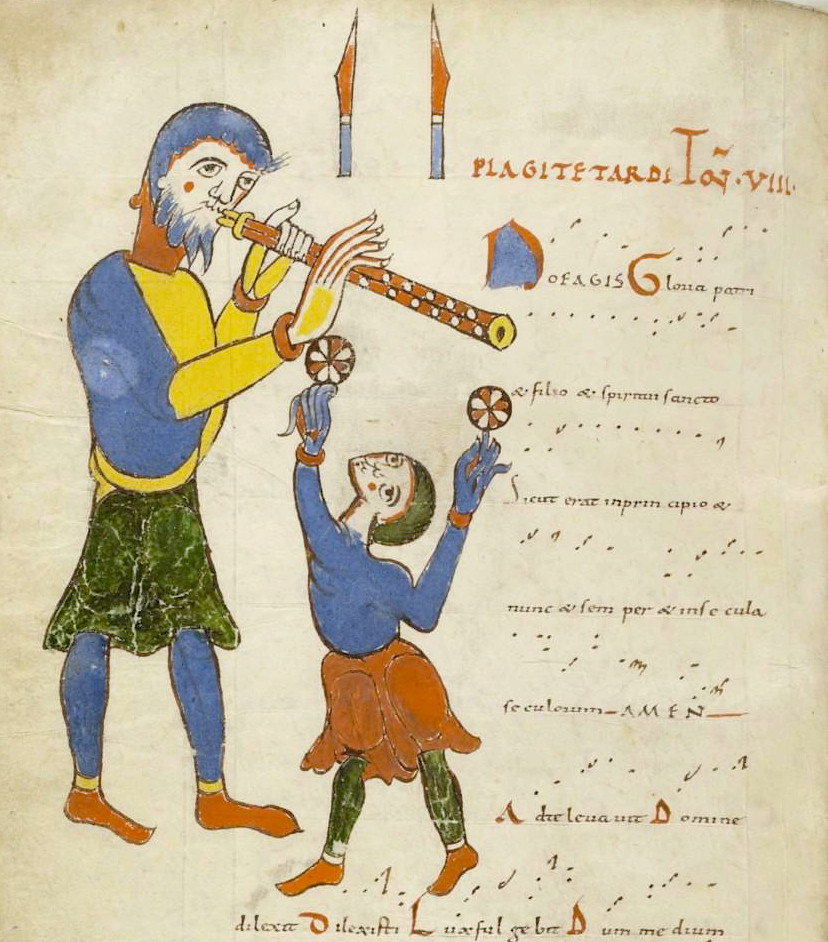 PLAGI TETARDI TOÑ·VIII·
NOEAGIS Gloria patri
& filio & spiritui sancto
Sicut erat in prin cipio &
nunc & sem per & in se cula
seculorum AMEN
Ad te leuauit Domine
dilexit Dilexisti Lux ful ge bit Dum me dium